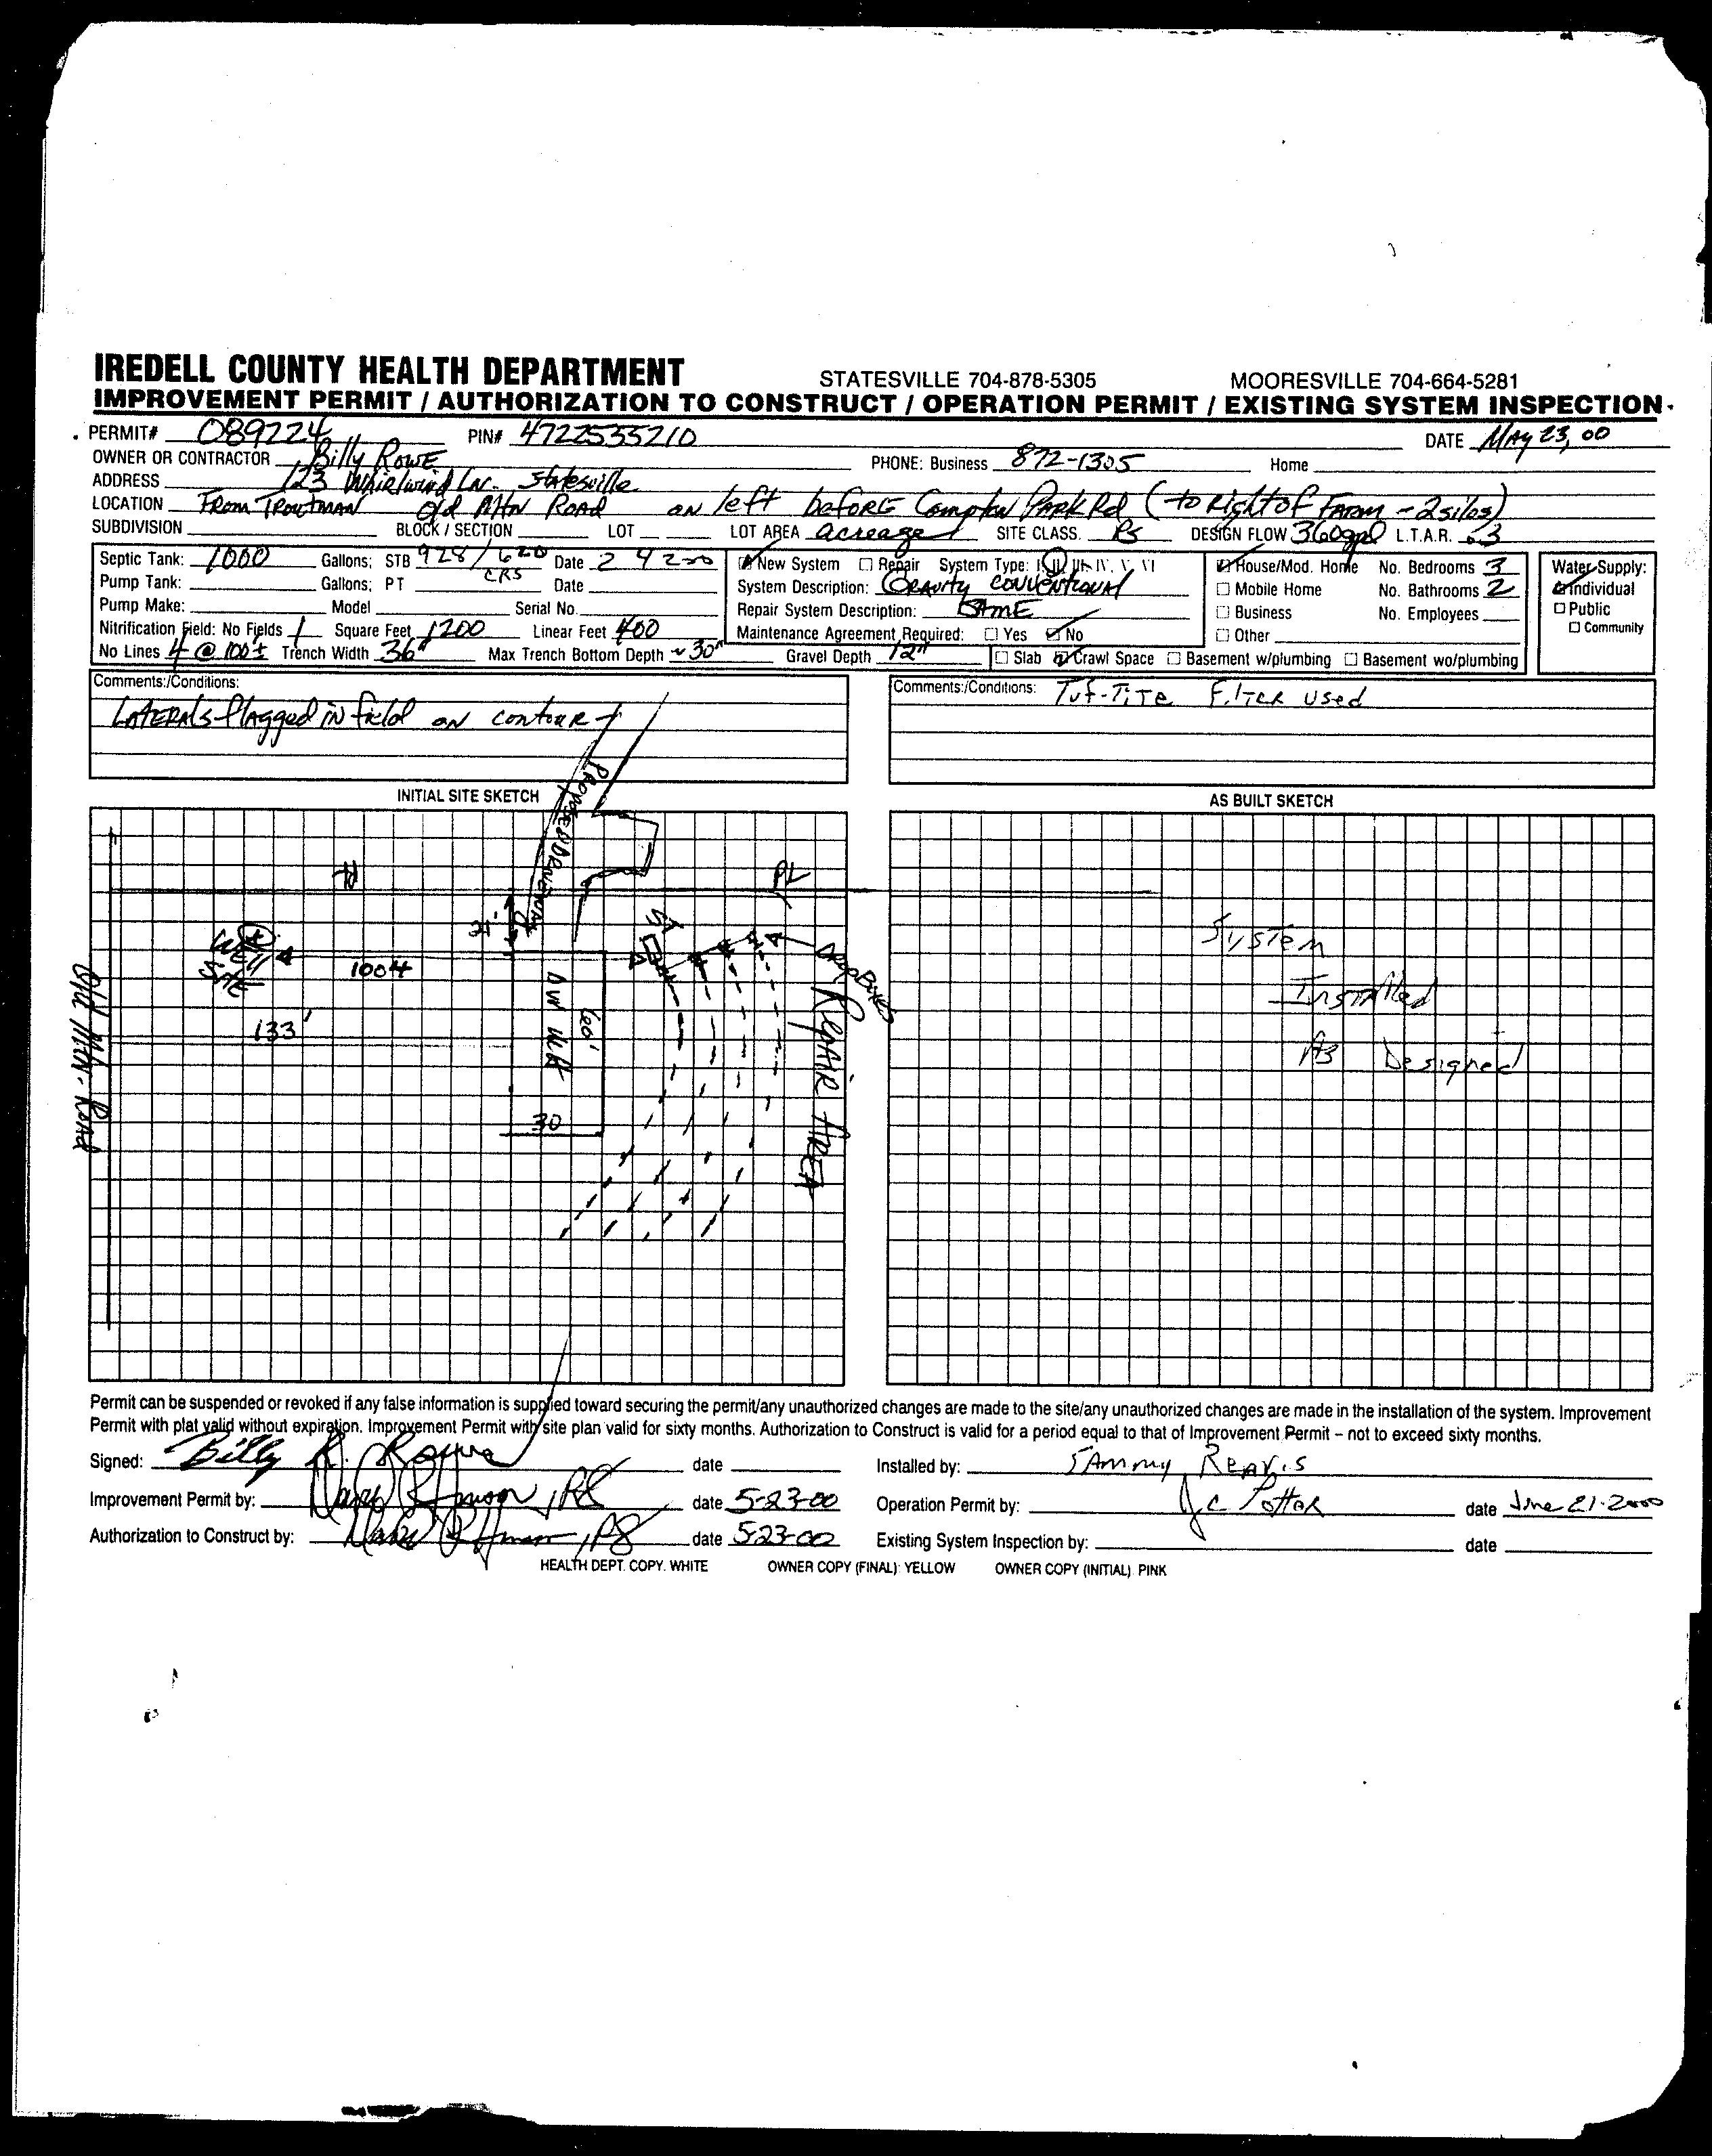 IREDELL COUNTY HEALTH DEPARTMENT STATESVILLE 704-878-5305 MOORESVILLE 704-664-5281
IMPROVEMENT PERMIT / AUTHORIZATION TO CONSTRUCT / OPERATION PERMIT / EXISTING SYSTEM INSPECTION
PERMIT# 089224 PIN# 4722535210 DATE MAY 23, 00
OWNER OR CONTRACTOR Billy ROWE PHONE: Business 872-1305 Home
ADDRESS 123 Whirlwind Ln. Statesville
LOCATION FROM TROUTMAN Old Mtn ROAD ON left before Compton PARK Rd (to Right of FARM - 2 silos)
SUBDIVISION BLOCK / SECTION LOT LOT AREA acreage SITE CLASS. PS DESIGN FLOW 360gpd L.T.A.R. .3
Septic Tank: 1000 Gallons; STB 928/620 Date 2 4 2-00 New System Repair System Type: I, II, III, IV, V, VI House/Mod. Home No. Bedrooms 3 Water Supply:
Pump Tank: Gallons; PT CRS Date System Description: GRAVITY CONVENTIONAL Mobile Home No. Bathrooms 2 Individual
Pump Make: Model Serial No. Repair System Description: SAME Business No. Employees Public
Nitrification Field: No Fields 1 Square Feet 1200 Linear Feet 400 Maintenance Agreement Required: Yes No Other Community
No Lines 4 @ 100± Trench Width 36" Max Trench Bottom Depth ~30" Gravel Depth 12" Slab Crawl Space Basement w/plumbing Basement wo/plumbing
Comments:/Conditions: Comments:/Conditions: Tuf-Tite Filter used
LATERALS flagged in field on contour
INITIAL SITE SKETCH AS BUILT SKETCH
PROPOSED DRIVEWAY
PL
ST
WELL SITE
100ft
133'
DW
60'
30
DROP BOXES
REPAIR AREA
Old Mtn. Road
System
Installed
As Designed
Permit can be suspended or revoked if any false information is supplied toward securing the permit/any unauthorized changes are made to the site/any unauthorized changes are made in the installation of the system. Improvement
Permit with plat valid without expiration. Improvement Permit with site plan valid for sixty months. Authorization to Construct is valid for a period equal to that of Improvement Permit – not to exceed sixty months.
Signed: Billy R. Rowe date Installed by: SAmmy REAVIS
Improvement Permit by: RS date 5-23-00 Operation Permit by: J.C. Potter date June 21-2000
Authorization to Construct by: RS date 5-23-00 Existing System Inspection by: date
HEALTH DEPT. COPY: WHITE OWNER COPY (FINAL): YELLOW OWNER COPY (INITIAL) PINK